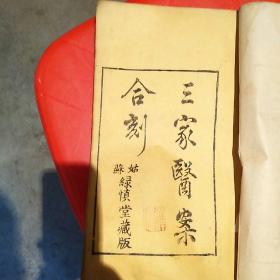 三家醫案
合刻
姑蘇
綠慎堂藏版